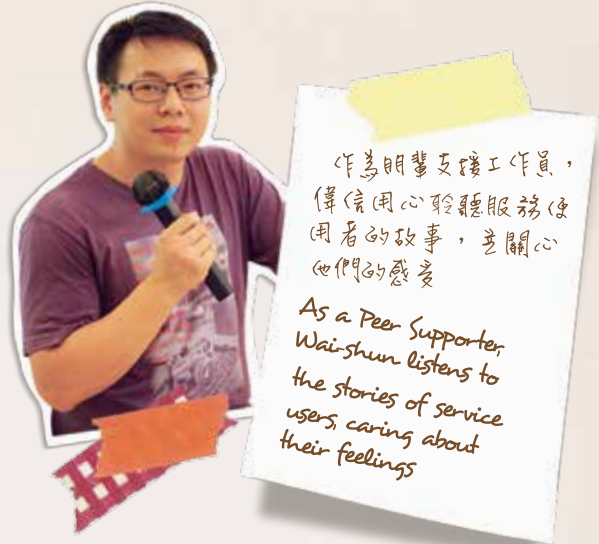 作為朋輩支援工作員，
偉信用心聆聽服務使
用者的故事，並關心
他們的感受
As a Peer Supporter,
Wai-shun listens to
the stories of service
users, caring about
their feelings